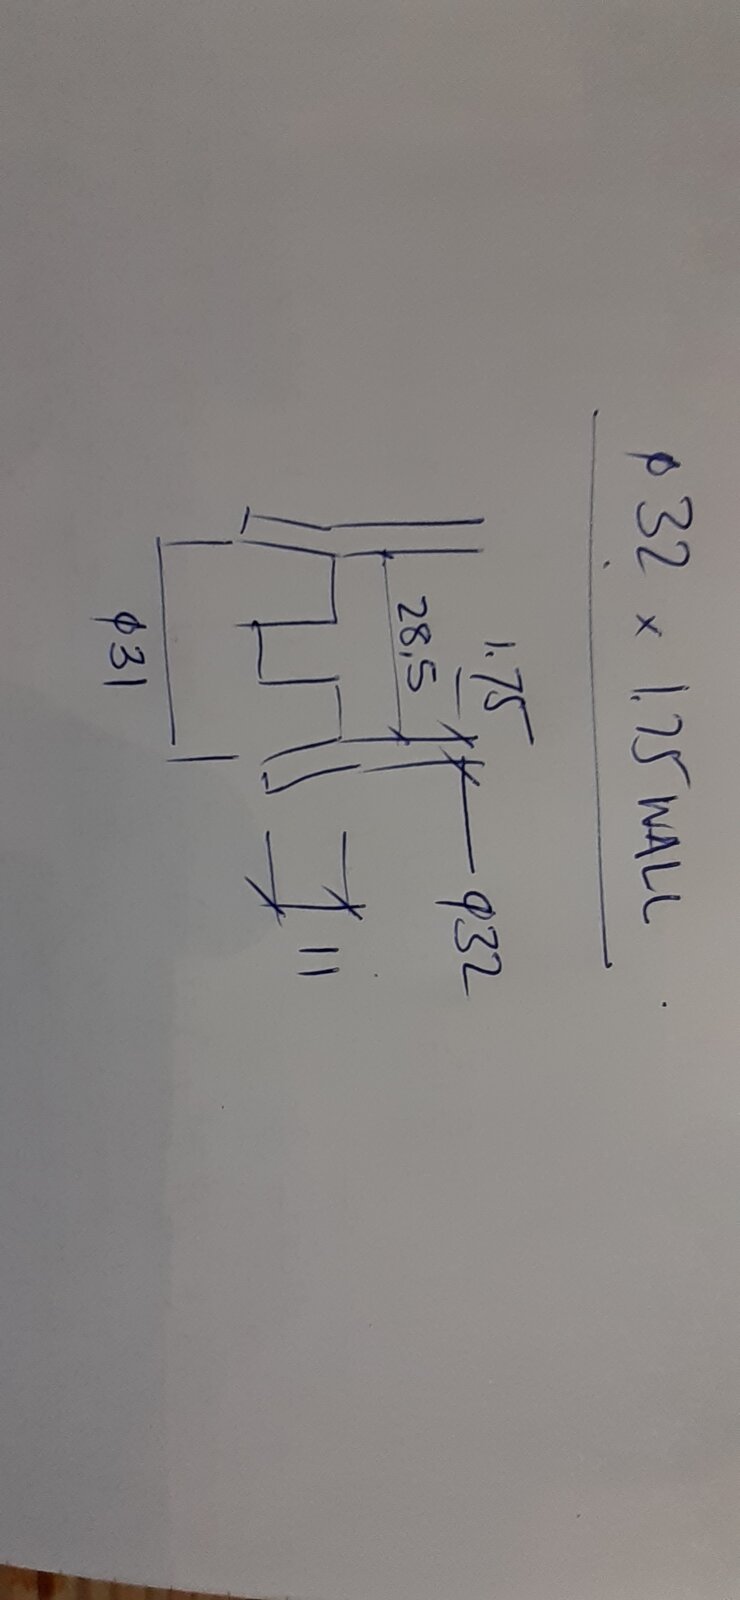 ϕ32 x 1.75 WALL
1.75
28.5
ϕ32
11
ϕ31